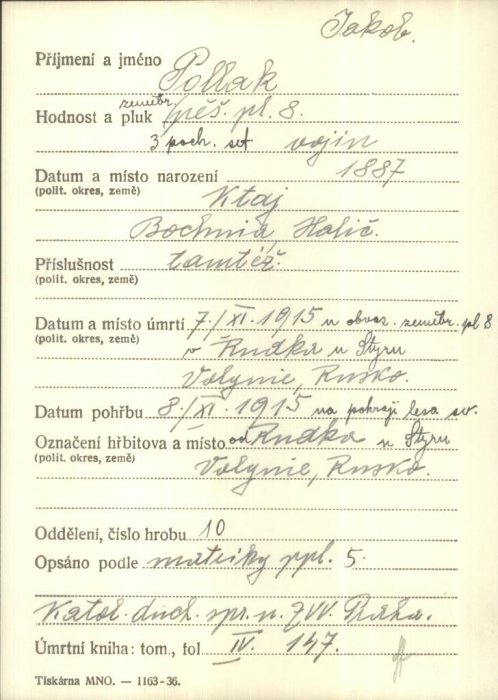 Jakob.
Příjmení a jméno Pollak
zeměbr.
Hodnost a pluk pěš. pl. 8.
3 poch. set vojín
Datum a místo narození 1887
(polit. okres, země) Ktaj
Bochnia, Halič.
Příslušnost tamtéž.
(polit. okres, země)
Datum a místo úmrtí 7./XI. 1915 u obvaz. zeměbr. pl 8
(polit. okres, země) v Rudka u Styru
Volynie, Rusko.
Datum pohřbu 8./XI. 1915 na pokraji lesa sv.
Označení hřbitova a místo od Rudka u Styru
(polit. okres, země) Volynie, Rusko.
Oddělení, číslo hrobu 10
Opsáno podle matriky ppl. 5.
Katol. duch. spr. u ZVV. Praha.
Úmrtní kniha: tom., fol IV. 147.
Tiskárna MNO. — 1163-36.